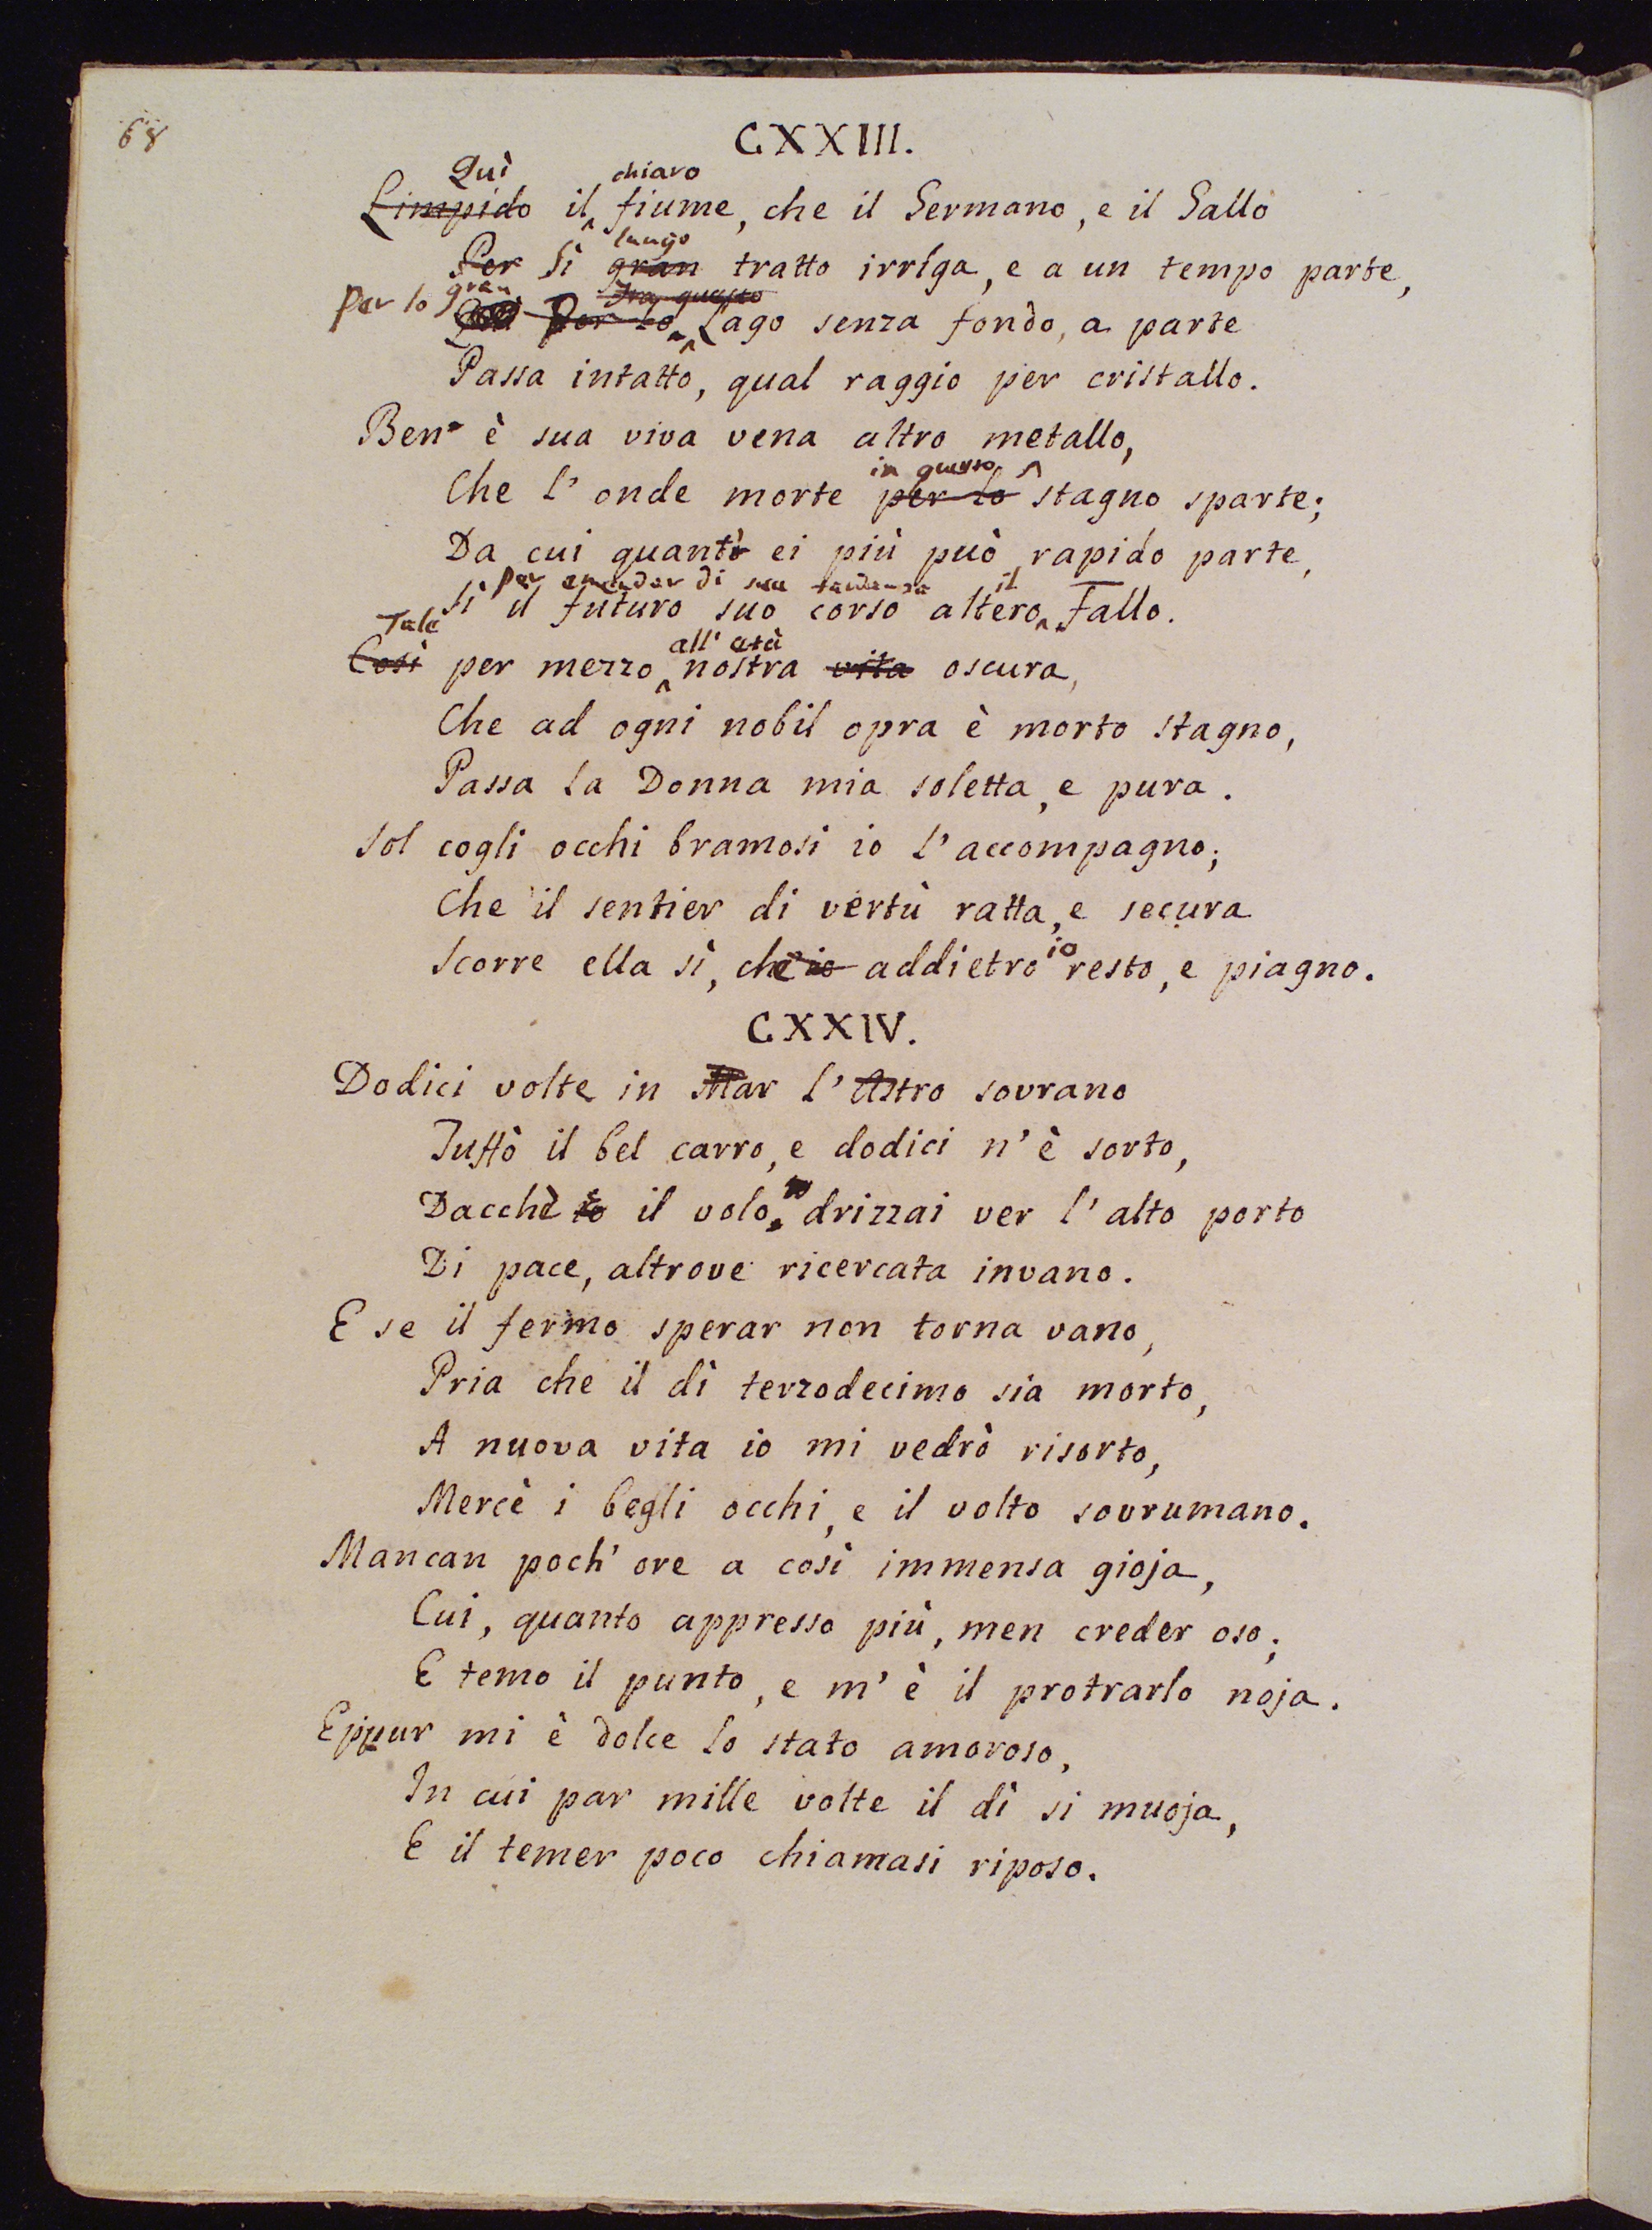 68
CXXIII.
Quì chiaro
Limpido il fiume, che il Germano, e il Gallo
lungo
Per sì gran tratto irríga, e a un tempo parte,
Per lo gran Fra questo
Per lo Lago senza fondo, a parte
Passa intatto, qual raggio per cristallo.
Ben è sua viva vena altro metallo,
in questo
Che l'onde morte per lo stagno sparte;
Da cui quanto ei più può rapido parte,
Per emendar di sua tardanza il
Sì il futuro suo corso altero fallo.
Tale all' età
Così per mezzo nostra vita oscura,
Che ad ogni nobil opra è morto stagno,
Passa la Donna mia soletta, e pura.
Sol cogli occhi bramosi io l'accompagno;
Che il sentier di vertù ratta, e secura
io
Scorre ella sì, ch'io addietro resto, e piagno.
CXXIV.
Dodici volte in Mar l'Astro sovrano
Tuffò il bel carro, e dodici n'è sorto,
io
Dacchè io il volo drizzai ver l'alto porto
Di pace, altrove ricercata invano.
E se il fermo sperar non torna vano,
Pria che il dì terzodecimo sia morto,
A nuova vita io mi vedrò risorto,
Mercè i begli occhi, e il volto sovrumano.
Mancan poch' ore a così immensa gioja,
Cui, quanto appresso più, men creder oso;
E temo il punto, e m'è il protrarlo noja.
Eppur mi è dolce lo stato amoroso,
In cui par mille volte il dì si muoja,
E il temer poco chiamasi riposo.